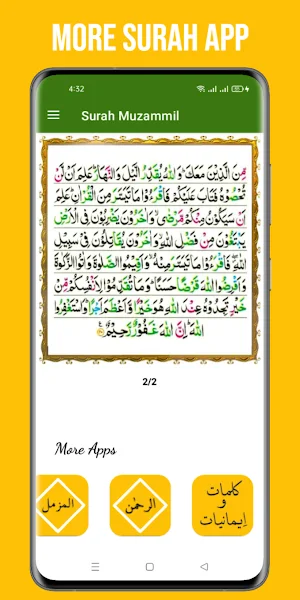 MORE SURAH APP
4:32
Surah Muzammil
مِّنَ الَّذِيْنَ مَعَكَ ؕ وَاللّٰهُ يُقَدِّرُ الَّيْلَ وَالنَّهَارَ ؕ عَلِمَ اَنْ لَّنْ
تُحْصُوْهُ فَتَابَ عَلَيْكُمْ فَاقْرَءُوْا مَا تَيَسَّرَ مِنَ الْقُرْاٰنِ ؕ عَلِمَ
اَنْ سَيَكُوْنُ مِنْكُمْ مَّرْضٰى ۙ وَاٰخَرُوْنَ يَضْرِبُوْنَ فِى الْاَرْضِ
يَبْتَغُوْنَ مِنْ فَضْلِ اللّٰهِ ۙ وَاٰخَرُوْنَ يُقَاتِلُوْنَ فِىْ سَبِيْلِ
اللّٰهِ ۖ فَاقْرَءُوْا مَا تَيَسَّرَ مِنْهُ ۙ وَاَقِيْمُوا الصَّلٰوةَ وَاٰتُوا الزَّكٰوةَ
وَاَقْرِضُوا اللّٰهَ قَرْضًا حَسَنًا ؕ وَمَا تُقَدِّمُوْا لِاَنْفُسِكُمْ مِّنْ
خَيْرٍ تَجِدُوْهُ عِنْدَ اللّٰهِ هُوَ خَيْرًا وَّاَعْظَمَ اَجْرًا ؕ وَاسْتَغْفِرُوا
اللّٰهَ ؕ اِنَّ اللّٰهَ غَفُوْرٌ رَّحِيْمٌ
2/2
More Apps
المزمل
الرحمٰن
كلمات
و
اِيمانيات